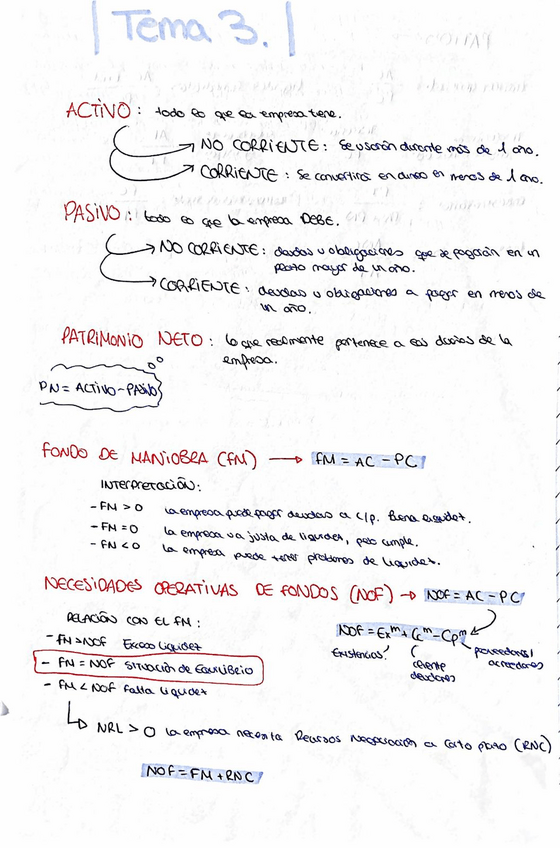 Tema 3.
ACTIVO: todo lo que la empresa tiene.
NO CORRIENTE: Se usarán durante más de 1 año.
CORRIENTE: Se convertirá en dinero en menos de 1 año.
PASIVO: todo lo que la empresa DEBE.
NO CORRIENTE: deudas u obligaciones que se pagarán en un
plazo mayor de un año.
CORRIENTE: deudas u obligaciones a pagar en menos de
un año.
PATRIMONIO NETO: lo que realmente pertenece a los dueños de la
empresa.
PN = ACTIVO - PASIVO
FONDO DE MANIOBRA (FM) → FM = AC - PC
INTERPRETACIÓN:
- FM > 0 la empresa puede pagar deudas a c/p. Buena liquidez.
- FM = 0 la empresa va justa de liquidez, pero cumple.
- FM < 0 la empresa puede tener problemas de liquidez.
NECESIDADES OPERATIVAS DE FONDOS (NOF) → NOF = AC - PC
RELACIÓN CON EL FM:
NOF = Ex^m + Cc^m - Cp^m
- FM > NOF Exceso liquidez
Existencias
cliente
deudores
proveedores/
acreedores
- FM = NOF SITUACIÓN DE EQUILIBRIO
- FM < NOF Falta liquidez
NRL > 0 la empresa necesita Recursos Negociación a Corto plazo (RNC)
NOF = FM + RNC